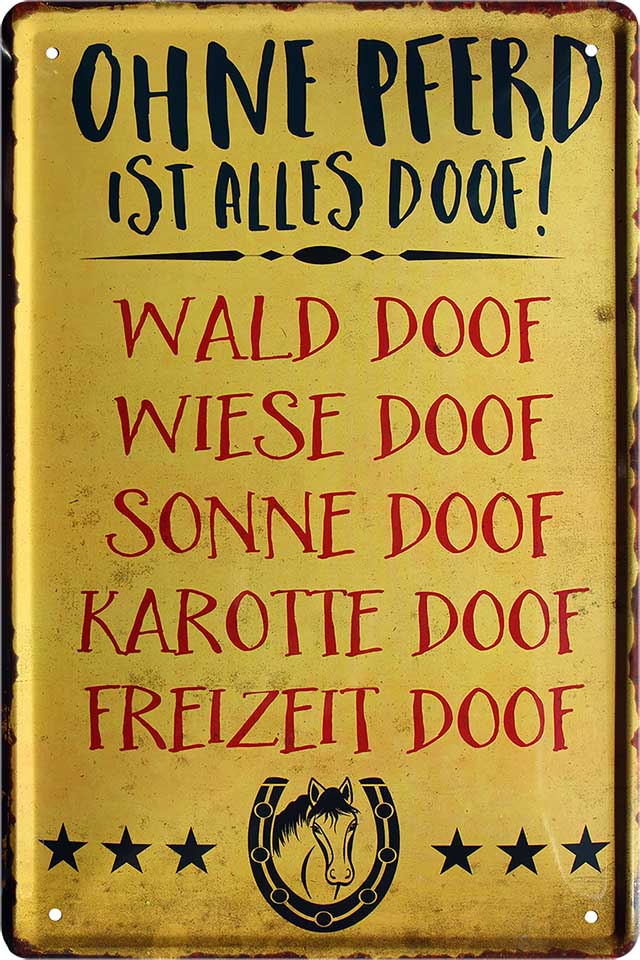 OHNE PFERD
IST ALLES DOOF!
WALD DOOF
WIESE DOOF
SONNE DOOF
KAROTTE DOOF
FREIZEIT DOOF